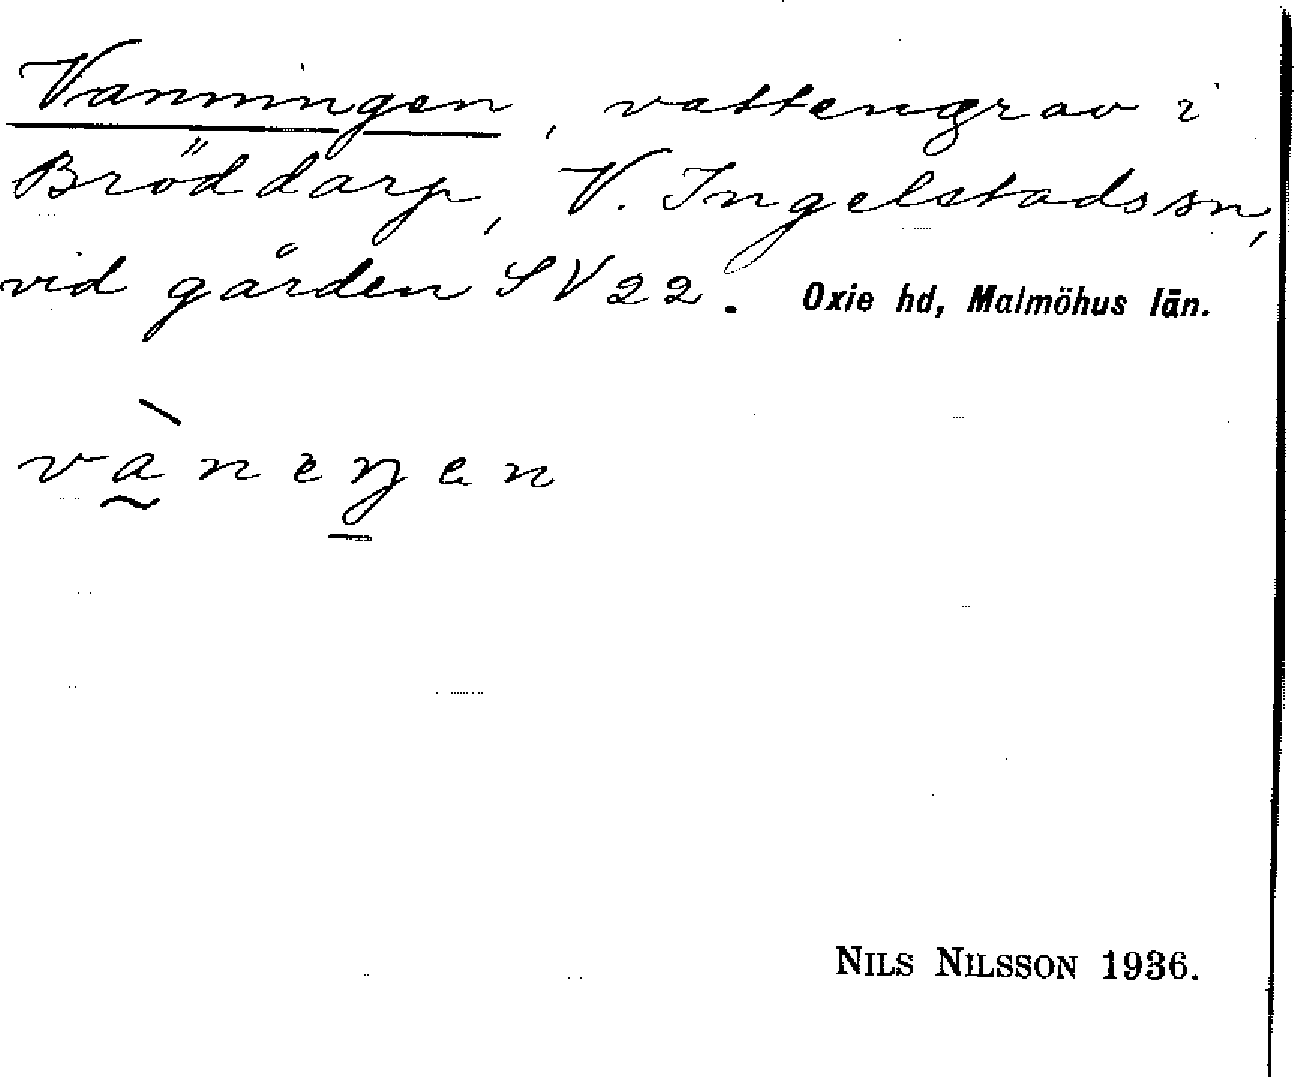 Vanningen, vattengrav i
Bröddarp, V. Ingelstads sn,
vid gården SV 22. Oxie hd, Malmöhus län.
vàneŋen
NILS NILSSON 1936.